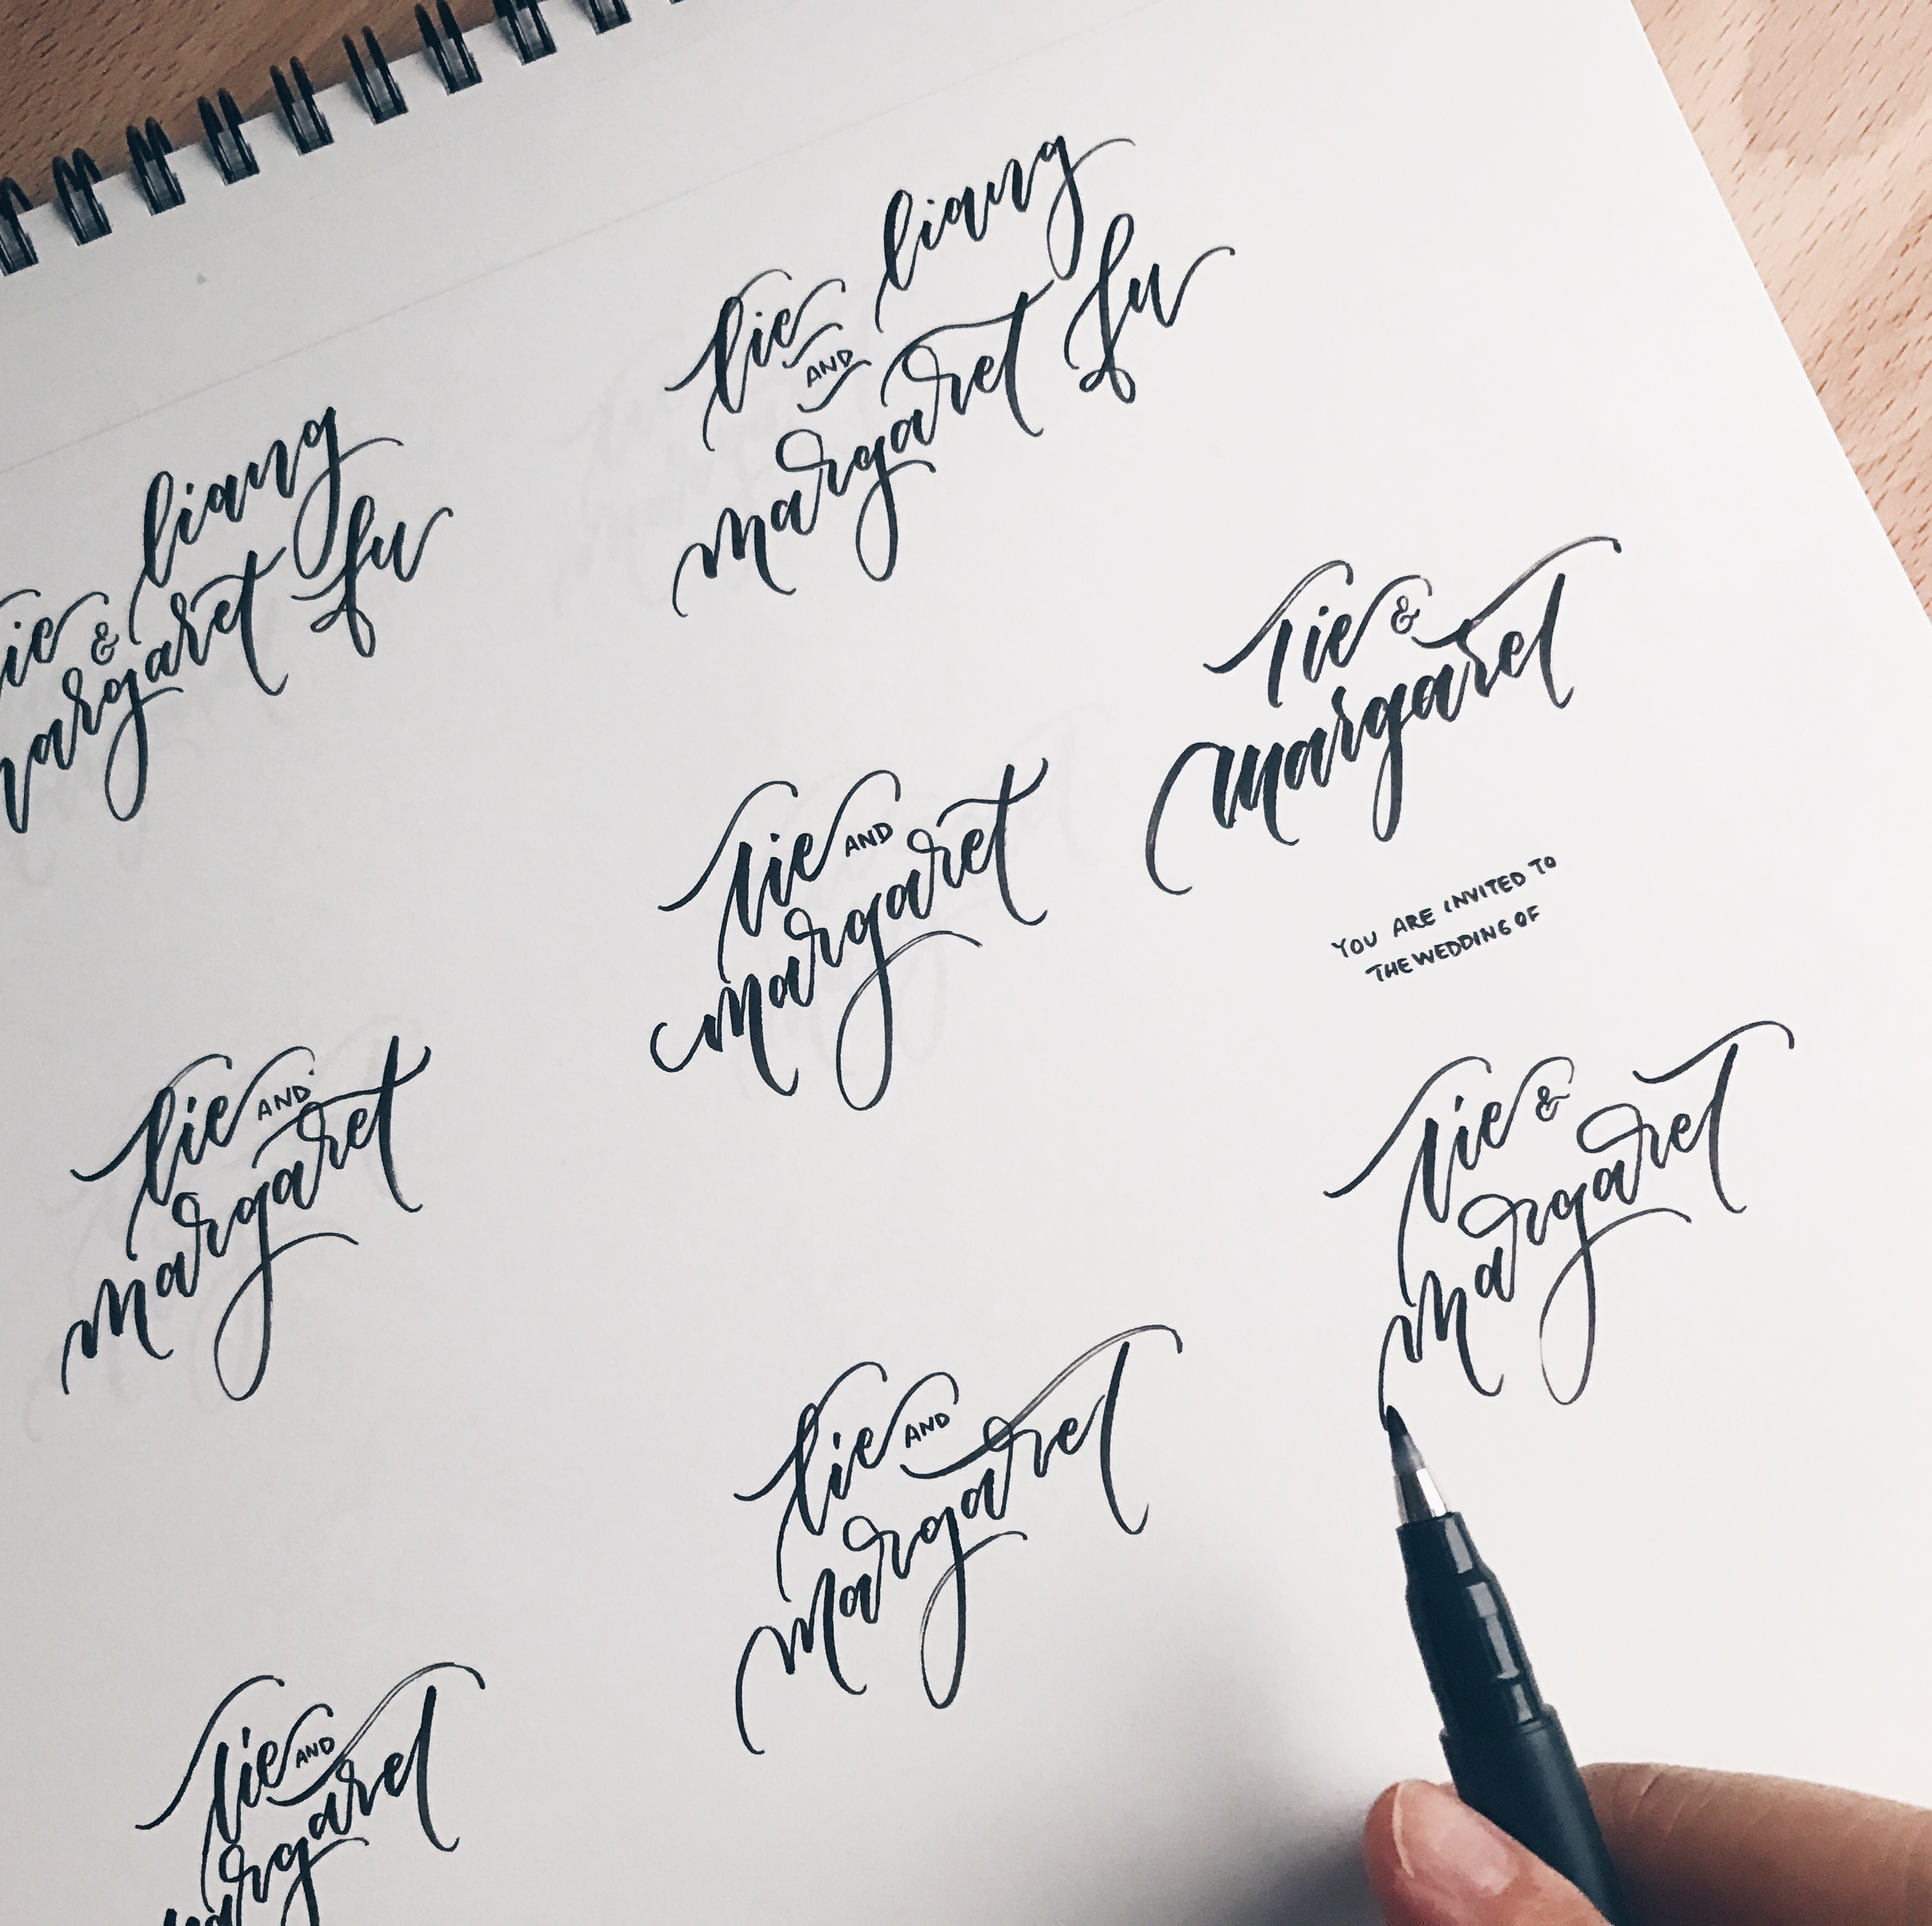 Tie AND liang
margaret fu
ie & liang
argaret fu
Tie &
margaret
Tie AND
margaret
YOU ARE INVITED TO
THE WEDDING OF
Tie AND
margaret
Tie &
margaret
Tie AND
margaret
Tie AND
margaret